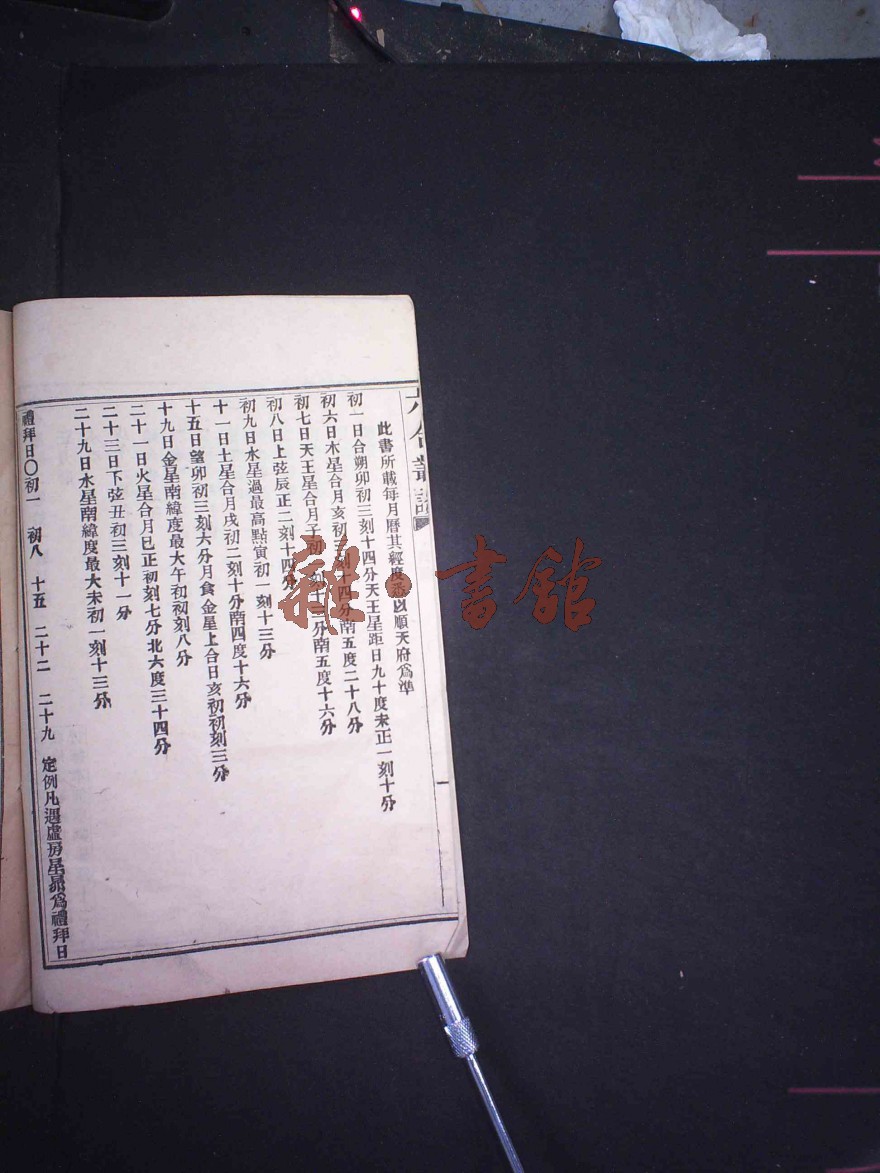 六合叢談
一
此書所載每月曆其經度悉以順天府爲準
初一日合朔卯初三刻十四分天王星距日九十度未正一刻十分
初六日木星合月亥初三刻十四分南五度二十八分
初七日天王星合月子初一刻十二分南五度十六分
初八日上弦辰正二刻十四分
初九日水星過最高點寅初一刻十三分
十一日土星合月戌初二刻十分南四度十六分
十五日望卯初三刻六分月食金星上合日亥初初刻三分
十九日金星南緯度最大午初初刻八分
二十一日火星合月巳正初刻七分北六度三十四分
二十三日下弦丑初三刻十一分
二十九日水星南緯度最大未初一刻十三分
禮拜日〇初一 初八 十五 二十二 二十九 定例凡遇虛房星昴爲禮拜日
雜·書館